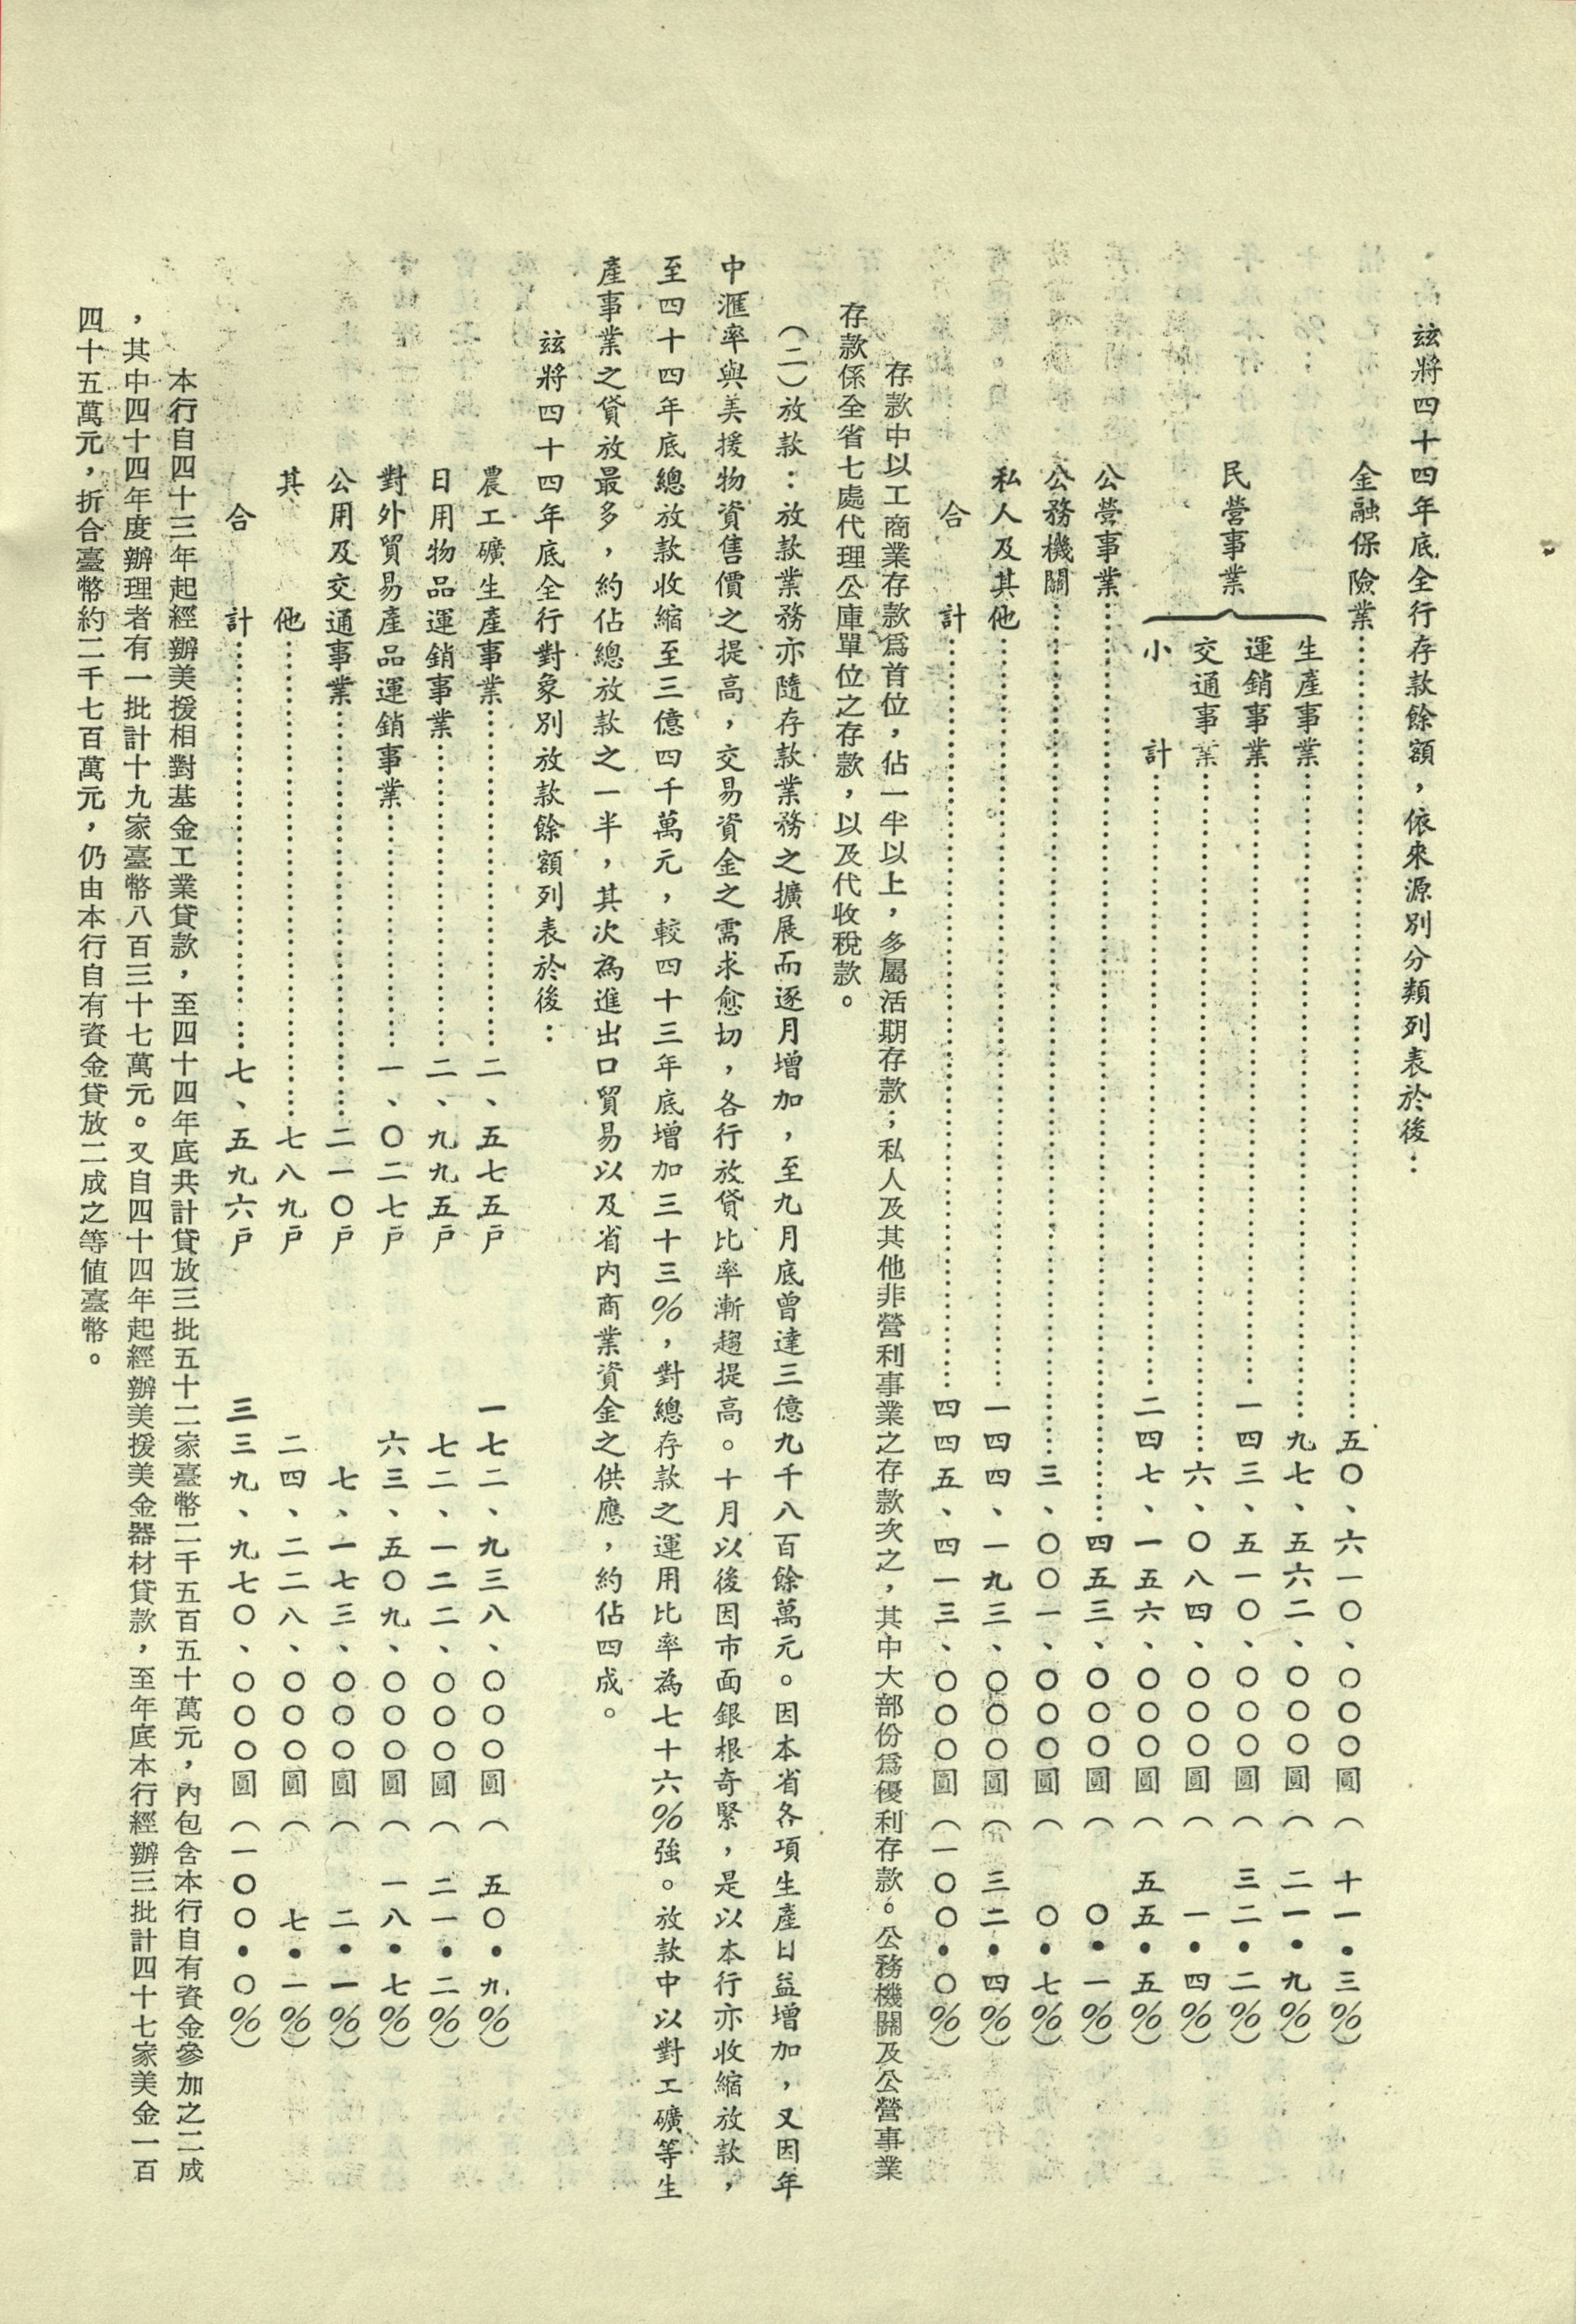 玆將四十四年底全行存款餘額，依來源別分類列表於後：
金融保險業……五〇、六一〇、〇〇〇圓（十一・三％）
民營事業
生產事業……九七、五六二、〇〇〇圓（二一・九％）
運銷事業……一四三、五一〇、〇〇〇圓（三二・二％）
交通事業……六、〇八四、〇〇〇圓（一・四％）
小計……二四七、一五六、〇〇〇圓（五五・五％）
公營事業……四五三、〇〇〇圓（〇・一％）
公務機關……三、〇〇一、〇〇〇圓（〇・七％）
私人及其他……一四四、一九三、〇〇〇圓（三二・四％）
合計……四四五、四一三、〇〇〇圓（一〇〇・〇％）
存款中以工商業存款爲首位，佔一半以上，多屬活期存款；私人及其他非營利事業之存款次之，其中大部份爲優利存款。公務機關及公營事業
存款係全省七處代理公庫單位之存款，以及代收稅款。
（二）放款：放款業務亦隨存款業務之擴展而逐月增加，至九月底曾達三億九千八百餘萬元。因本省各項生產日益增加，又因年
中滙率與美援物資售價之提高，交易資金之需求愈切，各行放貸比率漸趨提高。十月以後因市面銀根奇緊，是以本行亦收縮放款，
至四十四年底總放款收縮至三億四千萬元，較四十三年底增加三十三％，對總存款之運用比率為七十六％強。放款中以對工礦等生
產事業之貸放最多，約佔總放款之一半，其次為進出口貿易以及省內商業資金之供應，約佔四成。
玆將四十四年底全行對象別放款餘額列表於後：
農工礦生產事業……二、五七五戶　一七二、九三八、〇〇〇圓（五〇・九％）
日用物品運銷事業……二、九九五戶　七二、一二二、〇〇〇圓（二一・二％）
對外貿易產品運銷事業……一、〇二七戶　六三、五〇九、〇〇〇圓（一八・七％）
公用及交通事業……二一〇戶　七、一七三、〇〇〇圓（二・一％）
其他……七八九戶　二四、二二八、〇〇〇圓（七・一％）
合計……七、五九六戶　三三九、九七〇、〇〇〇圓（一〇〇・〇％）
本行自四十三年起經辦美援相對基金工業貸款，至四十四年底共計貸放三批五十二家臺幣二千五百五十萬元，內包含本行自有資金參加之二成
，其中四十四年度辦理者有一批計十九家臺幣八百三十七萬元。又自四十四年起經辦美援美金器材貸款，至年底本行經辦三批計四十七家美金一百
四十五萬元，折合臺幣約二千七百萬元，仍由本行自有資金貸放二成之等値臺幣。